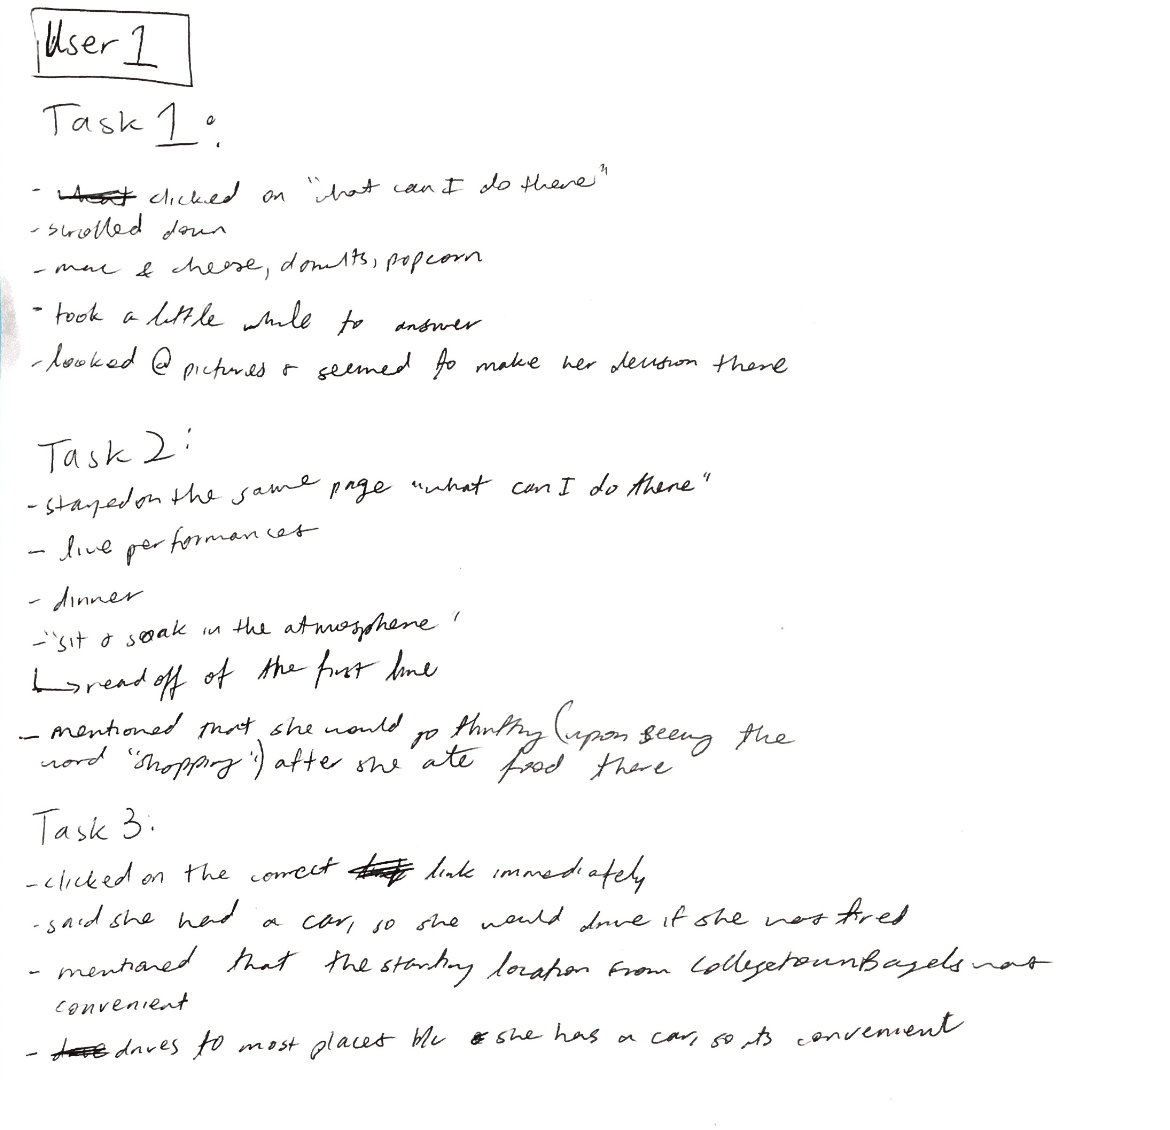 User 1
Task 1:
- clicked on "what can I do there"
- scrolled down
- mac & cheese, donuts, popcorn
- took a little while to answer
- looked @ pictures & seemed to make her decision there
Task 2:
- stayed on the same page "what can I do there"
- live performances
- dinner
- "sit & soak in the atmosphere"
↳ read off of the first line
- mentioned that she would go thrifting (upon seeing the
word "shopping") after she ate food there
Task 3:
- clicked on the correct link immediately
- said she had a car, so she would drive if she was tired
- mentioned that the starting location from CollegetownBagels was
convenient
- drives to most places b/c she has a car, so its convenient